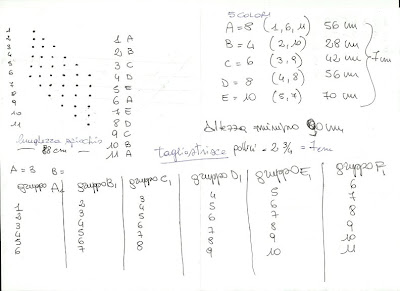 1 A
2 B
3 C
4 D
5 E
6 A
7 E
8 D
9 C
10 B
11 A
1
2
3
4
5
6
7
8
9
10
11
5 COLORI
A = 8 (1, 6, 11) 56 cm
B = 4 (2, 10) 28 cm
C = 6 (3, 9) 42 cm
D = 8 (4, 8) 56 cm
E = 10 (5, 7) 70 cm
7 cm
lunghezza spicchio
88 cm
altezza minimo 90 cm
tagliastrisce pollici - 2 3/4 = 7cm
A = 3 B =
gruppo A1 gruppo B1 gruppo C1 gruppo D1 gruppo E1 gruppo F1
1 2 3 4 5 6
2 3 4 5 6 7
3 4 5 6 7 8
4 5 6 7 8 9
5 6 7 8 9 10
6 7 8 9 10 11